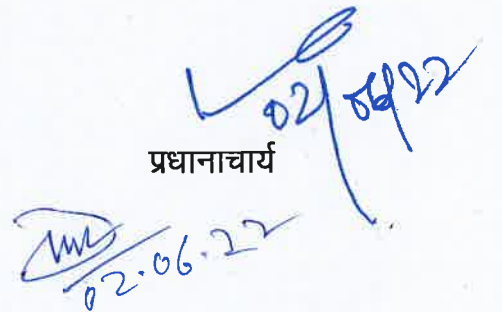 02/06/22
प्रधानाचार्य
02.06.22